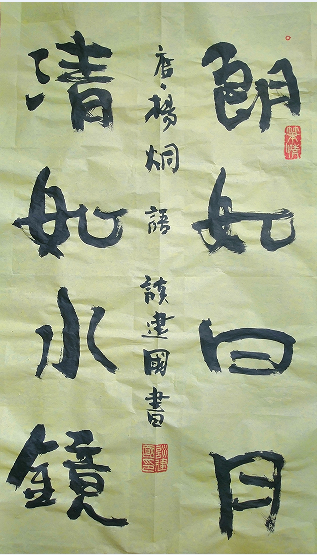 朗如日月
唐·楊炯語 建國書
清如水鏡